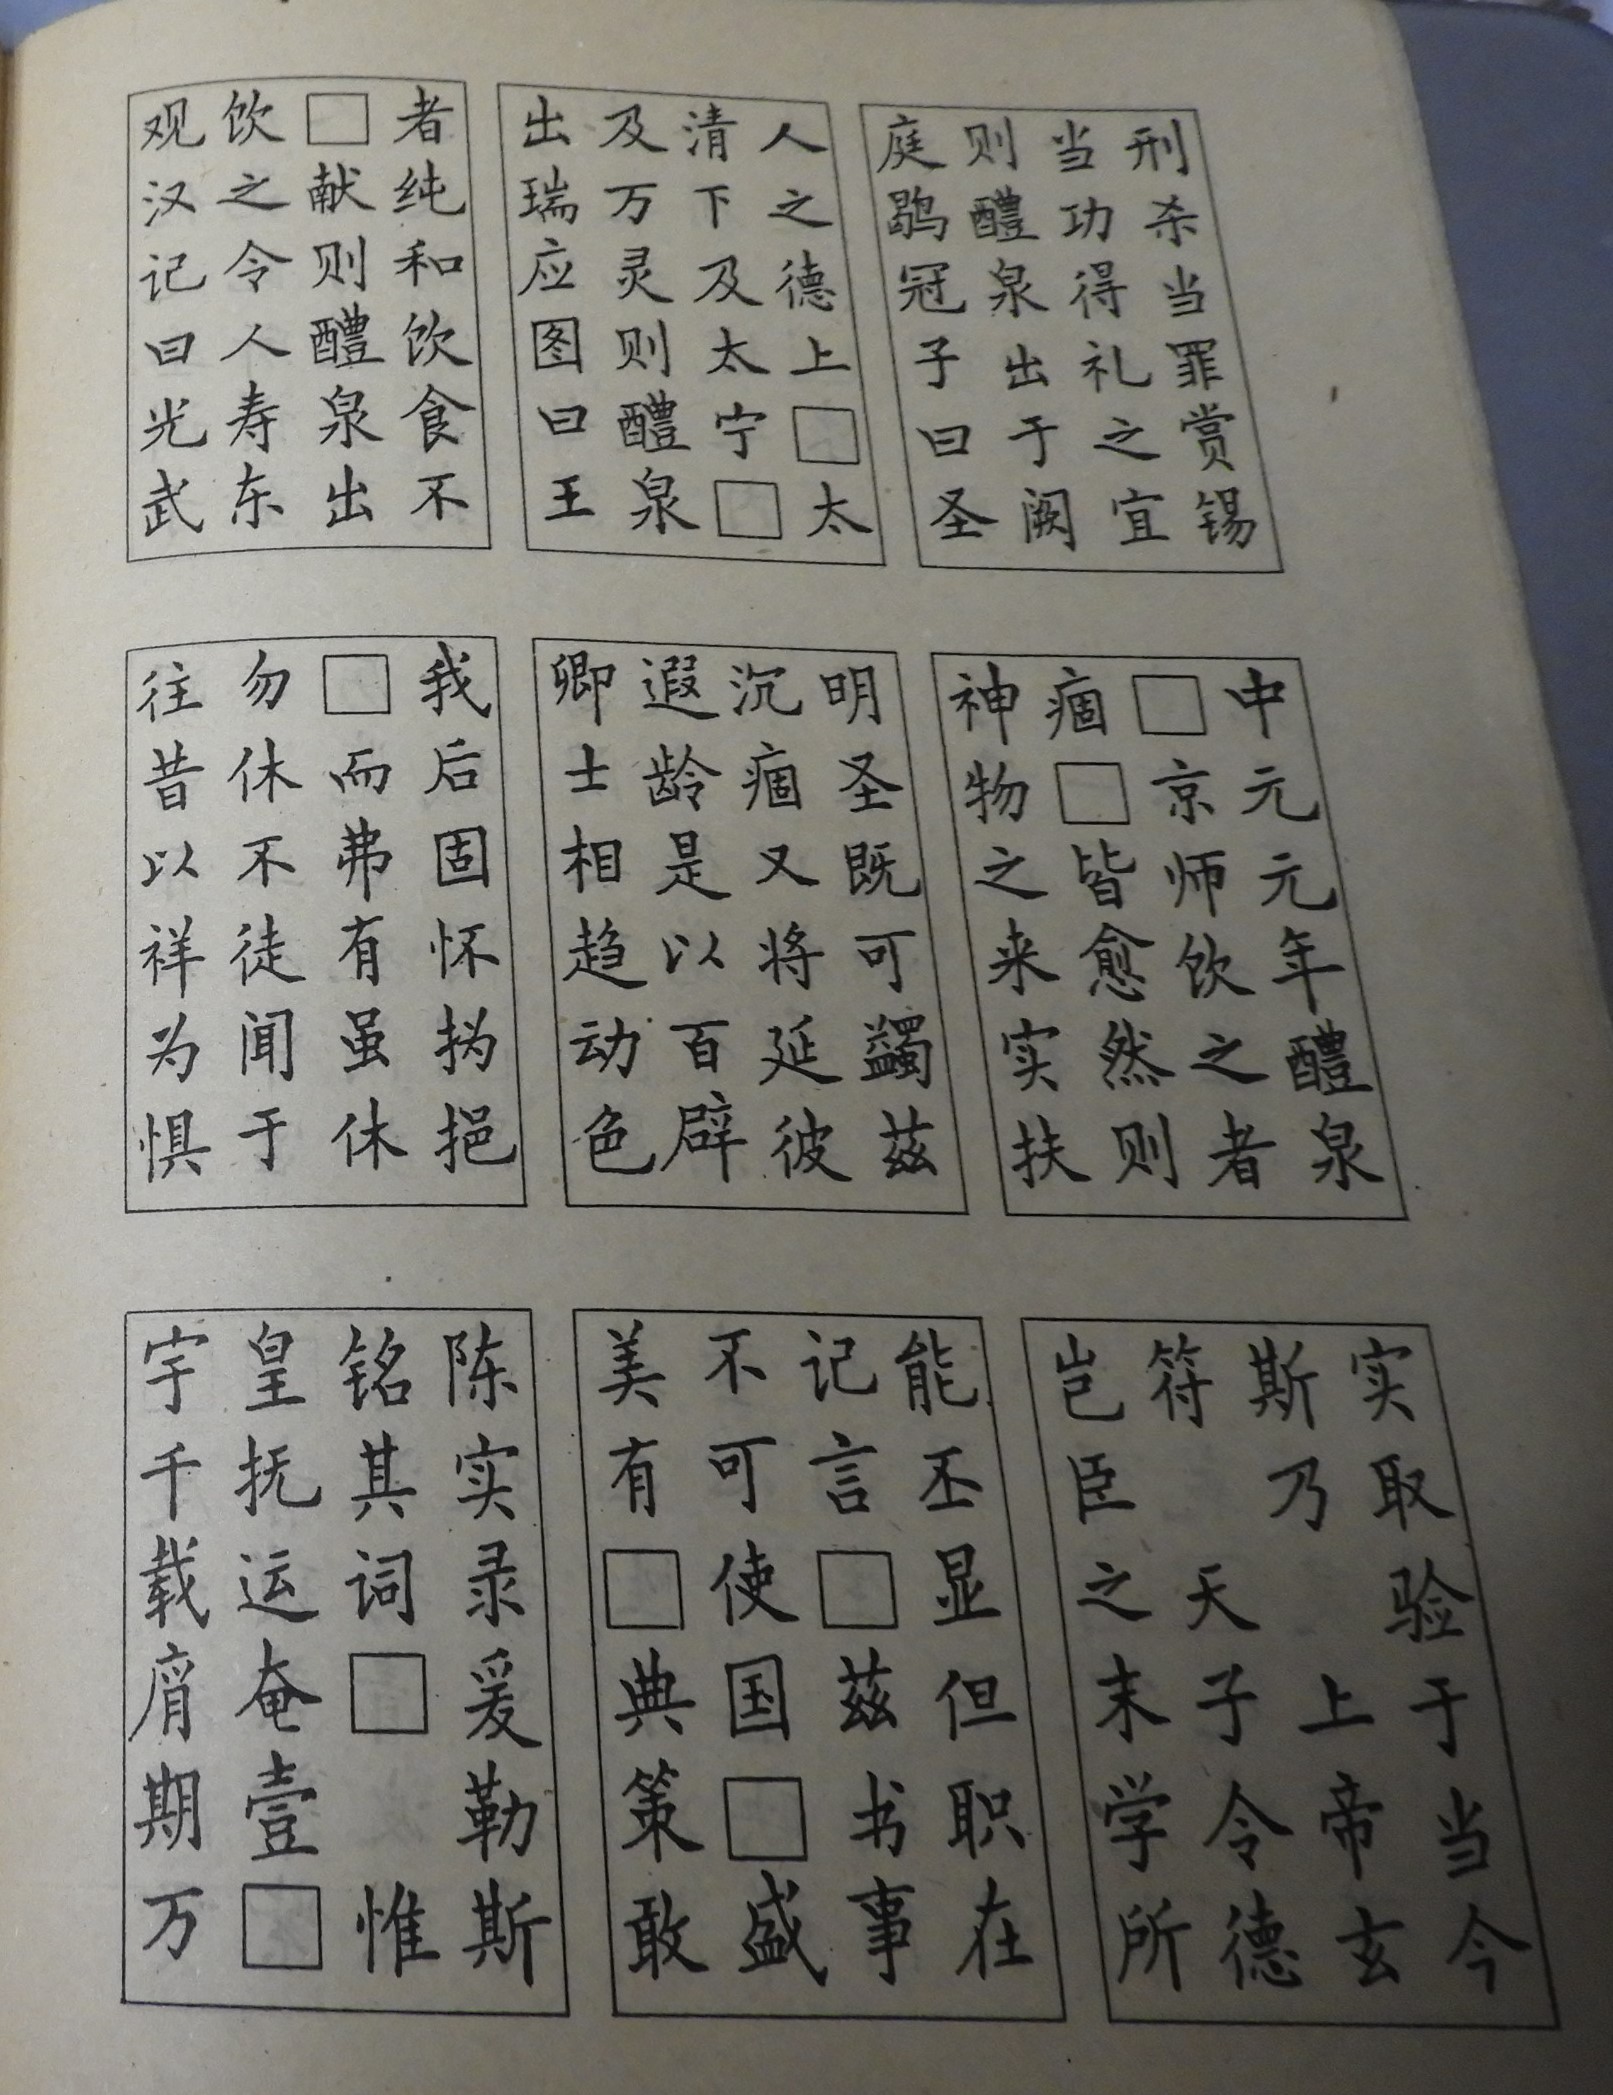 刑杀当罪赏锡
当功得礼之宜
则醴泉出于阙
庭鹖冠子曰圣
人之德上□太
清下及太宁□
及万灵则醴泉
出瑞应图曰王
者纯和饮食不
□献则醴泉出
饮之令人寿东
观汉记曰光武
中元元年醴泉
□京师饮之者
痼□皆愈然则
神物之来实扶
明圣既可蠲兹
沉痼又将延彼
遐龄是以百辟
卿士相趋动色
我后固怀㧑挹
□而弗有虽休
勿休不徒闻于
往昔以祥为惧
实取验于当今
斯乃 上帝玄
符 天子令德
岂臣之末学所
能丕显但职在
记言□兹书事
不可使国□盛
美有□典策敢
陈实录爰勒斯
铭其词□ 惟
皇抚运奄壹□
宇千载期万